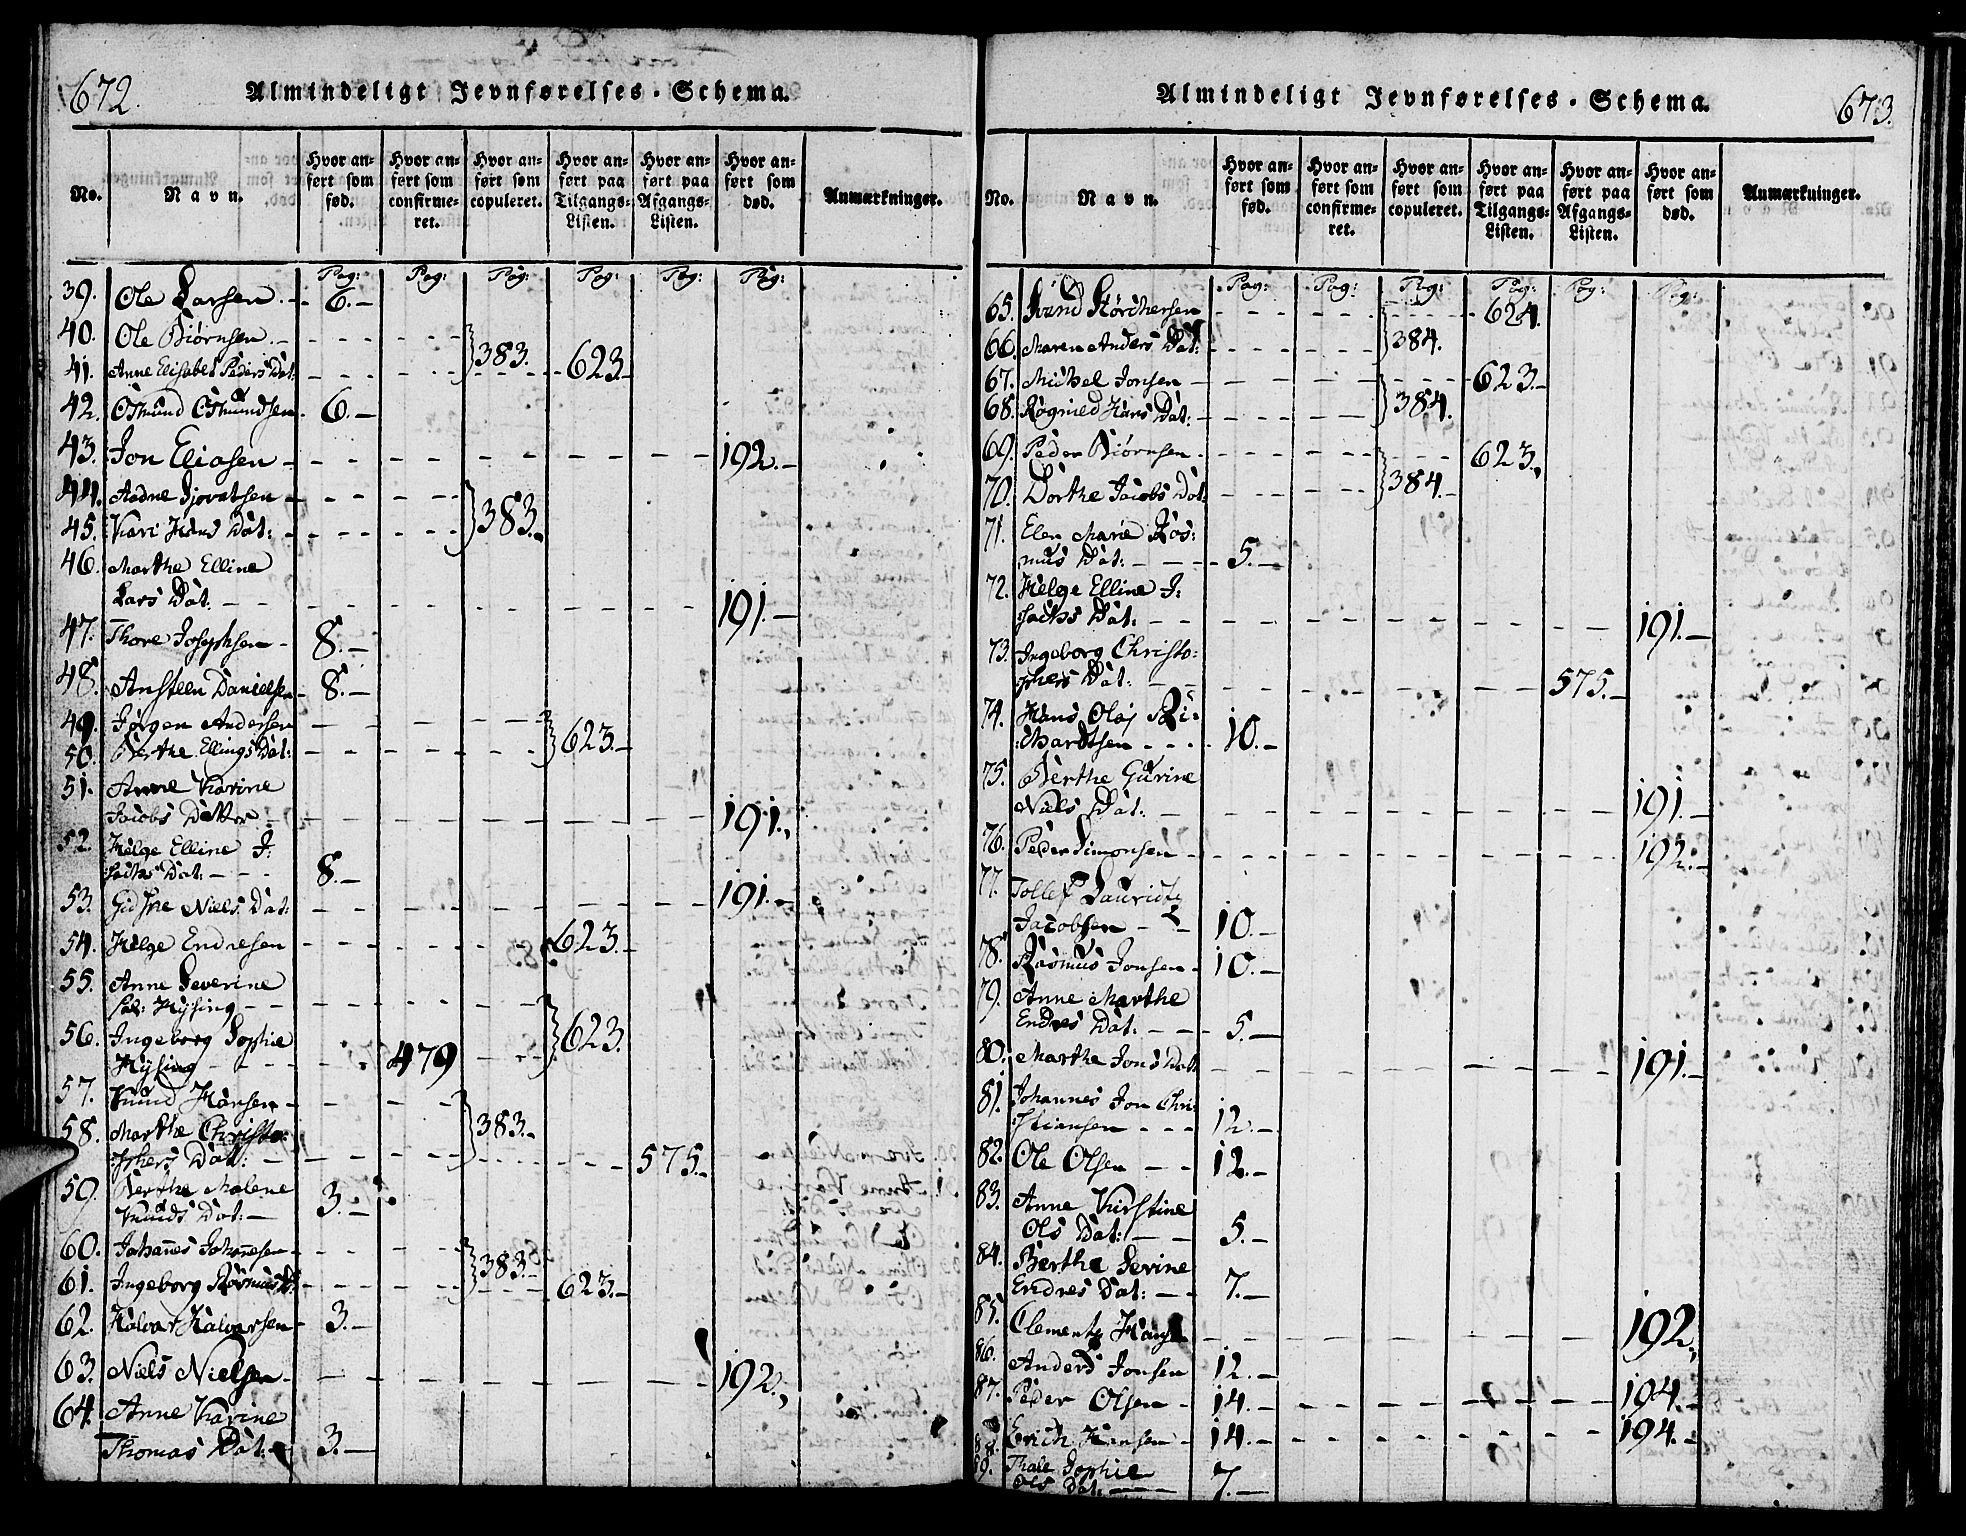 672.
Almindeligt Jevnførelses-Schema.
No.
Navn.
Hvor anført som fød.
Hvor anført som confirmeret.
Hvor anført som copuleret.
Hvor anført paa Tilgangs-Listen.
Hvor anført paa Afgangs-Listen.
Hvor anført som død.
Anmærkninger.
Pag: Pag: Pag: Pag: Pag: Pag:
39. Ole Larsen. - 6. -
40. Ole Biørnsen. - - - - 383.
41. Anne Elisabet Peders Dat: - - - - 623.
42. Osmund Osmundsen. 6. -
43. Jon Eliasen - - - - - - 192. -
44. Aadne Sjovatsen - - - - 383.
45. Kari Hans Dat: - - - -
46. Marthe Elline
Lars Dat. - - - - - - - 191. -
47. Thore Josephsen - 8. -
48. Ansteen Danielsen - 8. -
49. Jørgen Andersen - - - - 623. -
50. Berthe Ellings Dat: - - - -
51. Anne Karine
Jacobs Datter - - - - - - 191.
52. Helge Elline J:
sachs Dat. - - - 8. -
53. Niels Dat: - - - - - - 191. -
54. Helge Endresen - - - - 623. -
55. Anne Severine
Sal: Hysing - - - - - -
56. Ingeborg Sophie 623.
Hysing - - - - 479 - - -
57. Knud Hansen - - - 383. -
58. Marthe Christo-
phers Dat: - - - - - - 575. -
59. Berthe Malene
Knuds Dat: - 3. -
60. Johannes Johannesen - - - 383. -
61. Ingeborg Rasmus D: - - - - 623. -
62. Halvar Halvarsen - 3. -
63. Niels Nielsen - - - - - - 192.
64. Anne Karine
Thomas Dat: - 3. -
Almindeligt Jevnførelses-Schema.
673.
No.
Navn.
Hvor anført som fød.
Hvor anført som confirmeret.
Hvor anført som copuleret.
Hvor anført paa Tilgangs-Listen.
Hvor anført paa Afgangs-Listen.
Hvor anført som død.
Anmærkninger.
Pag: Pag: Pag: Pag: Pag: Pag:
65. - - - - - 624.
66. Maren Anders Dat: - - - - 384.
67. Michel Jonsen - - - - - 623. -
68. Hans Dat: - - - - 384.
69. Peder Biørnsen. - - - - 623.
70. Dorthe Jacobs Dat: - - - - 384. -
71. Elen Marie Ras:
mus Dat: - - - - 5. -
72. Helge Elline J:
sachs Dat: - - - - - - - 191. -
73. Ingeborg Christo:
phers Dat: - - - - - - 575. -
74. Hans Olaj Ri:
chardtsen - - - - 10. -
75. Berthe Gurine
Niels Dat: - - - - - - - 191. -
76. Peder Simonsen - - - - - - 192. -
77. Tollef Lauridtz
Jacobsen - - 10. -
78. Rasmus Jonsen - 10. -
79. Anne Marthe
Endres Dat: - - - 5. -
80. Marthe Jons Dat: - - - - - - 191. -
81. Johannes Jon Chri:
stiansen - - - 12. -
82. Ole Olsen - - - 12. -
83. Anne Kirstine
Ols Dat: - - 5. -
84. Berthe Serine
Endres Dat: - - 7. -
85. Clementz - - - - - - 192.
86. Anders Jonsen 12. -
87. Peder Olsen - 14. - - - - - - 194. -
88. Erich Hansen - 14. - - - - - - 194. -
89. Thale Sophie
Ols Dat: - - - 7. -